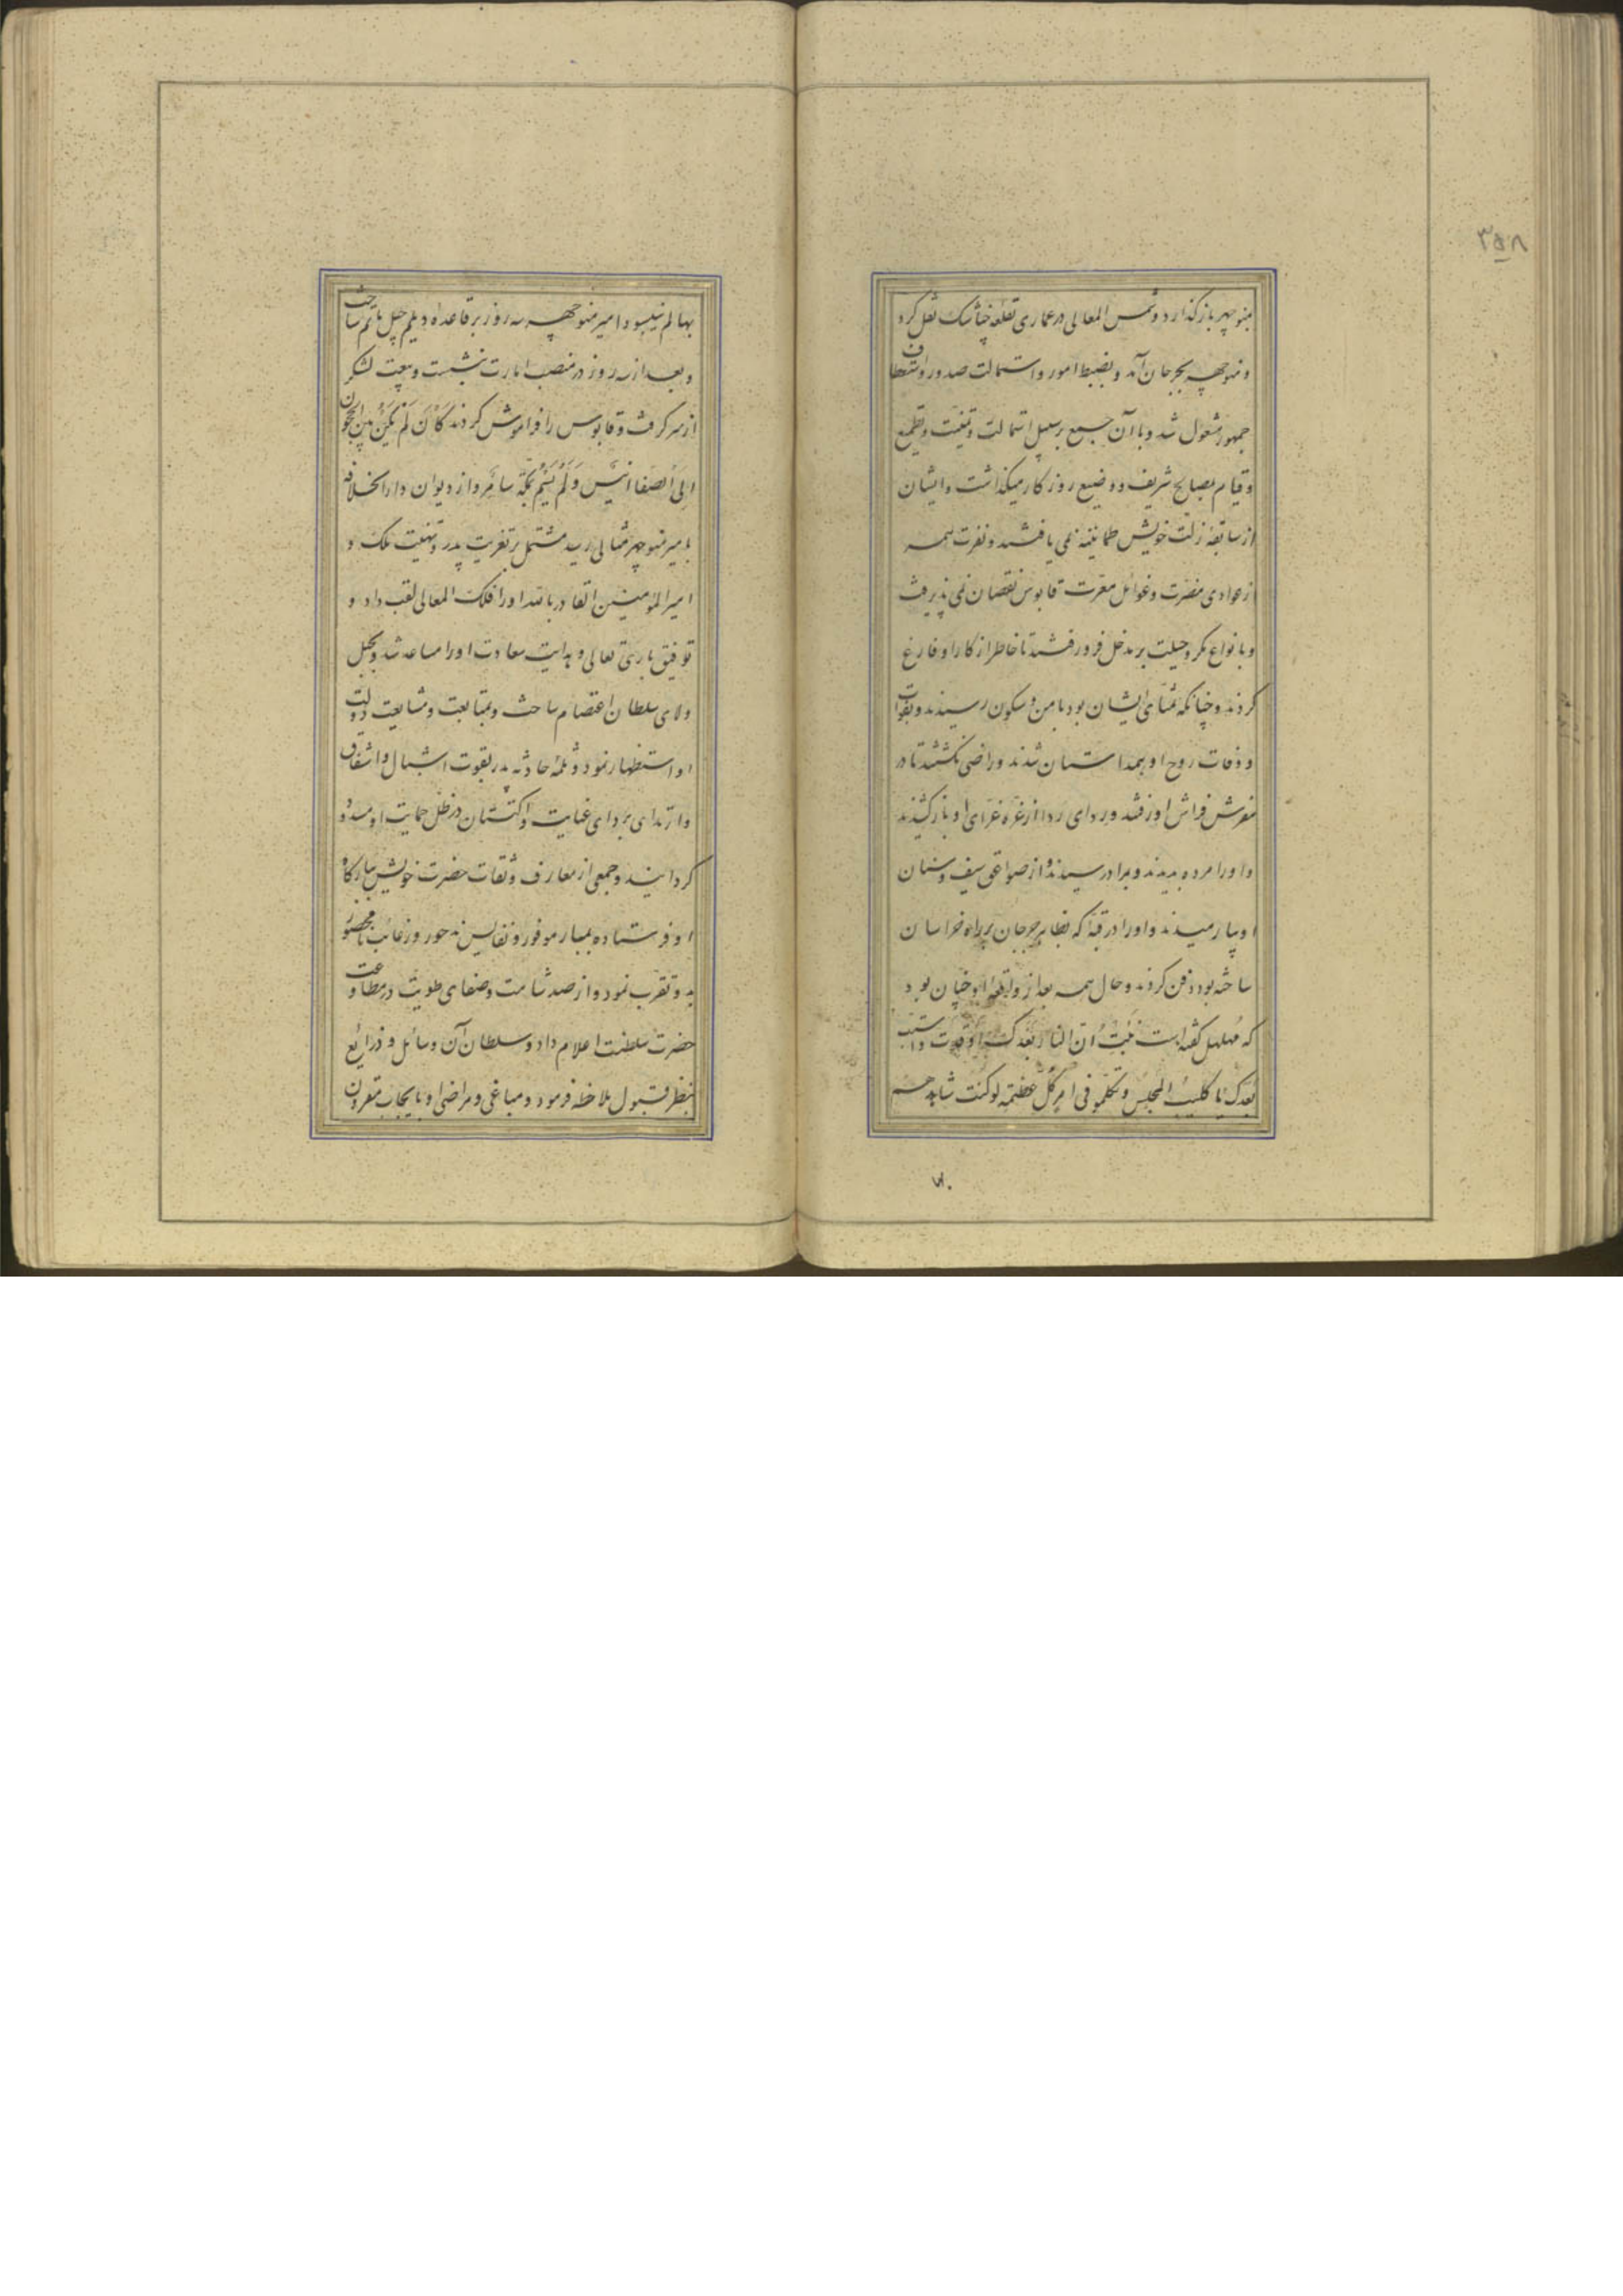 ۳۵۸
بمنوچهر باز گذارد و شمس المعالی در عماری بقلعه خناشک نقل کرد
و منوچهر بجرجان آمد و بضبط امور و استمالت صدور و استعطاف
جمهور مشغول شد و با آن جمع بر سبیل استمالت و تمنیت و تطمیع
و قیام بمصالح شریف و وضیع روزکار میکذاشت و ایشان
از سابقه زلت خویش طمانینه نمی یافتند و نفرت همه
از عوادی مضرت و غوائل معرت قابوس نقصان نمی پذیرفت
و بانواع مکر و حیلت بر مدخل فرو رفتند تا خاطر از کار او فارغ
کردند و چنانکه تمنای ایشان بود بامن و سکون رسیدند و بفوات
و وفات روح او همداستان شدند و راضی نکشتند تا در
مفرش فراش او رفتند و ردای ردا از غره غرای او باز کشیدند
و او را مرده بدیدند و بمراد رسیدند و از صواعق سیف و سنان
او بیارمیدند و او را در قبه که بظاهر جرجان بر راه خراسان
ساخته بود دفن کردند و حال همه بعد از واقعه او چنان بود
که مهلهل کفته است نبئت ان النار بعدک اوقدت واستب
بعدک یا کلیب المجلس وتکلموا فی امر کل عظیمه لو کنت شاهدهم
بها لم ینبسوا و امیر منوچهر سه روز بر قاعده دیلم چل ماتم ساخت
و بعد از سه روز در منصب امارت بنشست و بیعت لشکر
از سر کرفت و قابوس را فراموش کردند کان لم یکن بین الحجون
الی الصفا انیس ولم یسم بمکه سامر و از دیوان دار الخلافه
بامیر منوچهر مثالی رسید مشتمل بر تعزیت پدر و تهنیت ملک و
امیر المؤمنین القادر بالله او را فلک المعالی لقب داد و
توفیق باری تعالی و هدایت سعادت او را مساعد شد و بحبل
ولای سلطان اعتصام ساخت و بمتابعت و مشایعت دولت
او استظهار نمود و ثلمه حادثه پدر بقوت اشبال و اشفاق
و ارتدای بردای عنایت و اکتنان در ظل حمایت او مسدود
کردانید و جمعی از معارف و ثقات حضرت خویش ببارکاه
او فرستاده بمبار موفور و نفایس مذخور و رغائب نامحصور
بدو تقرب نمود و از صدق شامت و صفای طویت در مطاوعت
حضرت سلطنت اعلام داد و سلطان آن وسائل و ذرایع
بنظر قبول ملاحظه فرمود و مباغی و مراضی او بایجاب مقرون